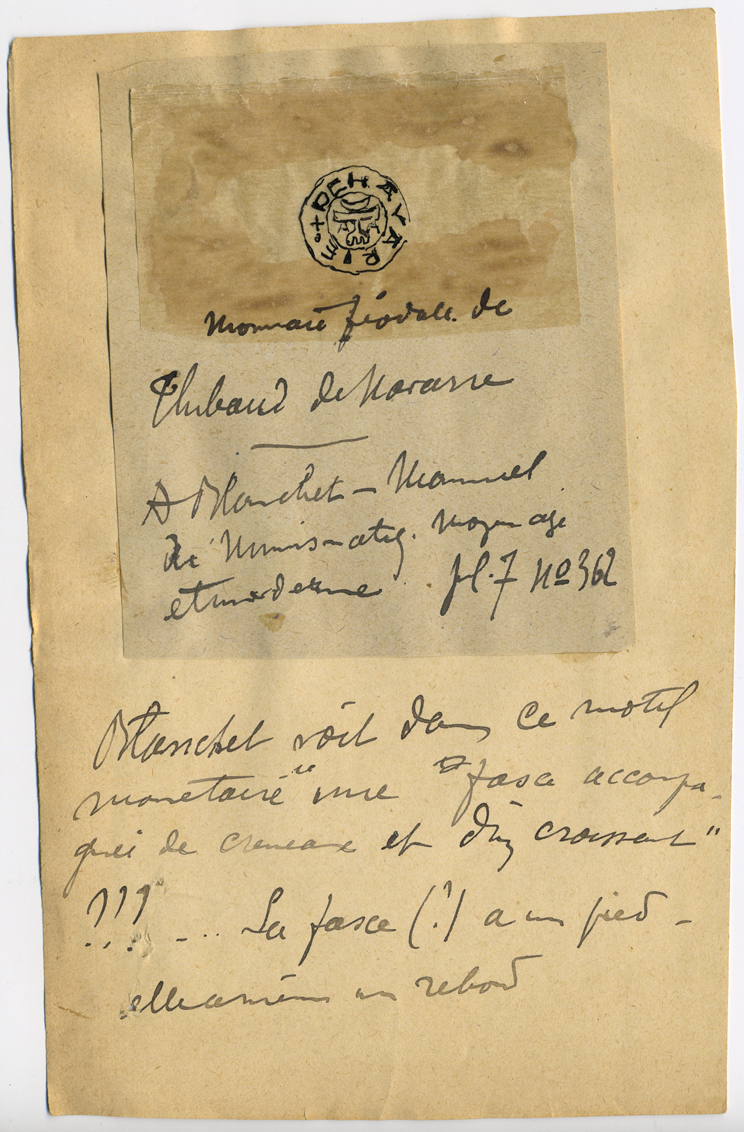 + DE HAVARIE
Monnaie féodale de
Thibaud de Navarre
A Blanchet – Manuel
de Numismatiq. moyen age
et moderne pl. 7 No 362
Blanchet voit dans ce motif
monetaire "une fasce accompa-
gnée de creneaux et d'un croissant"
!!! - .. La fasce (?) a un pied -
elle a même un rebord